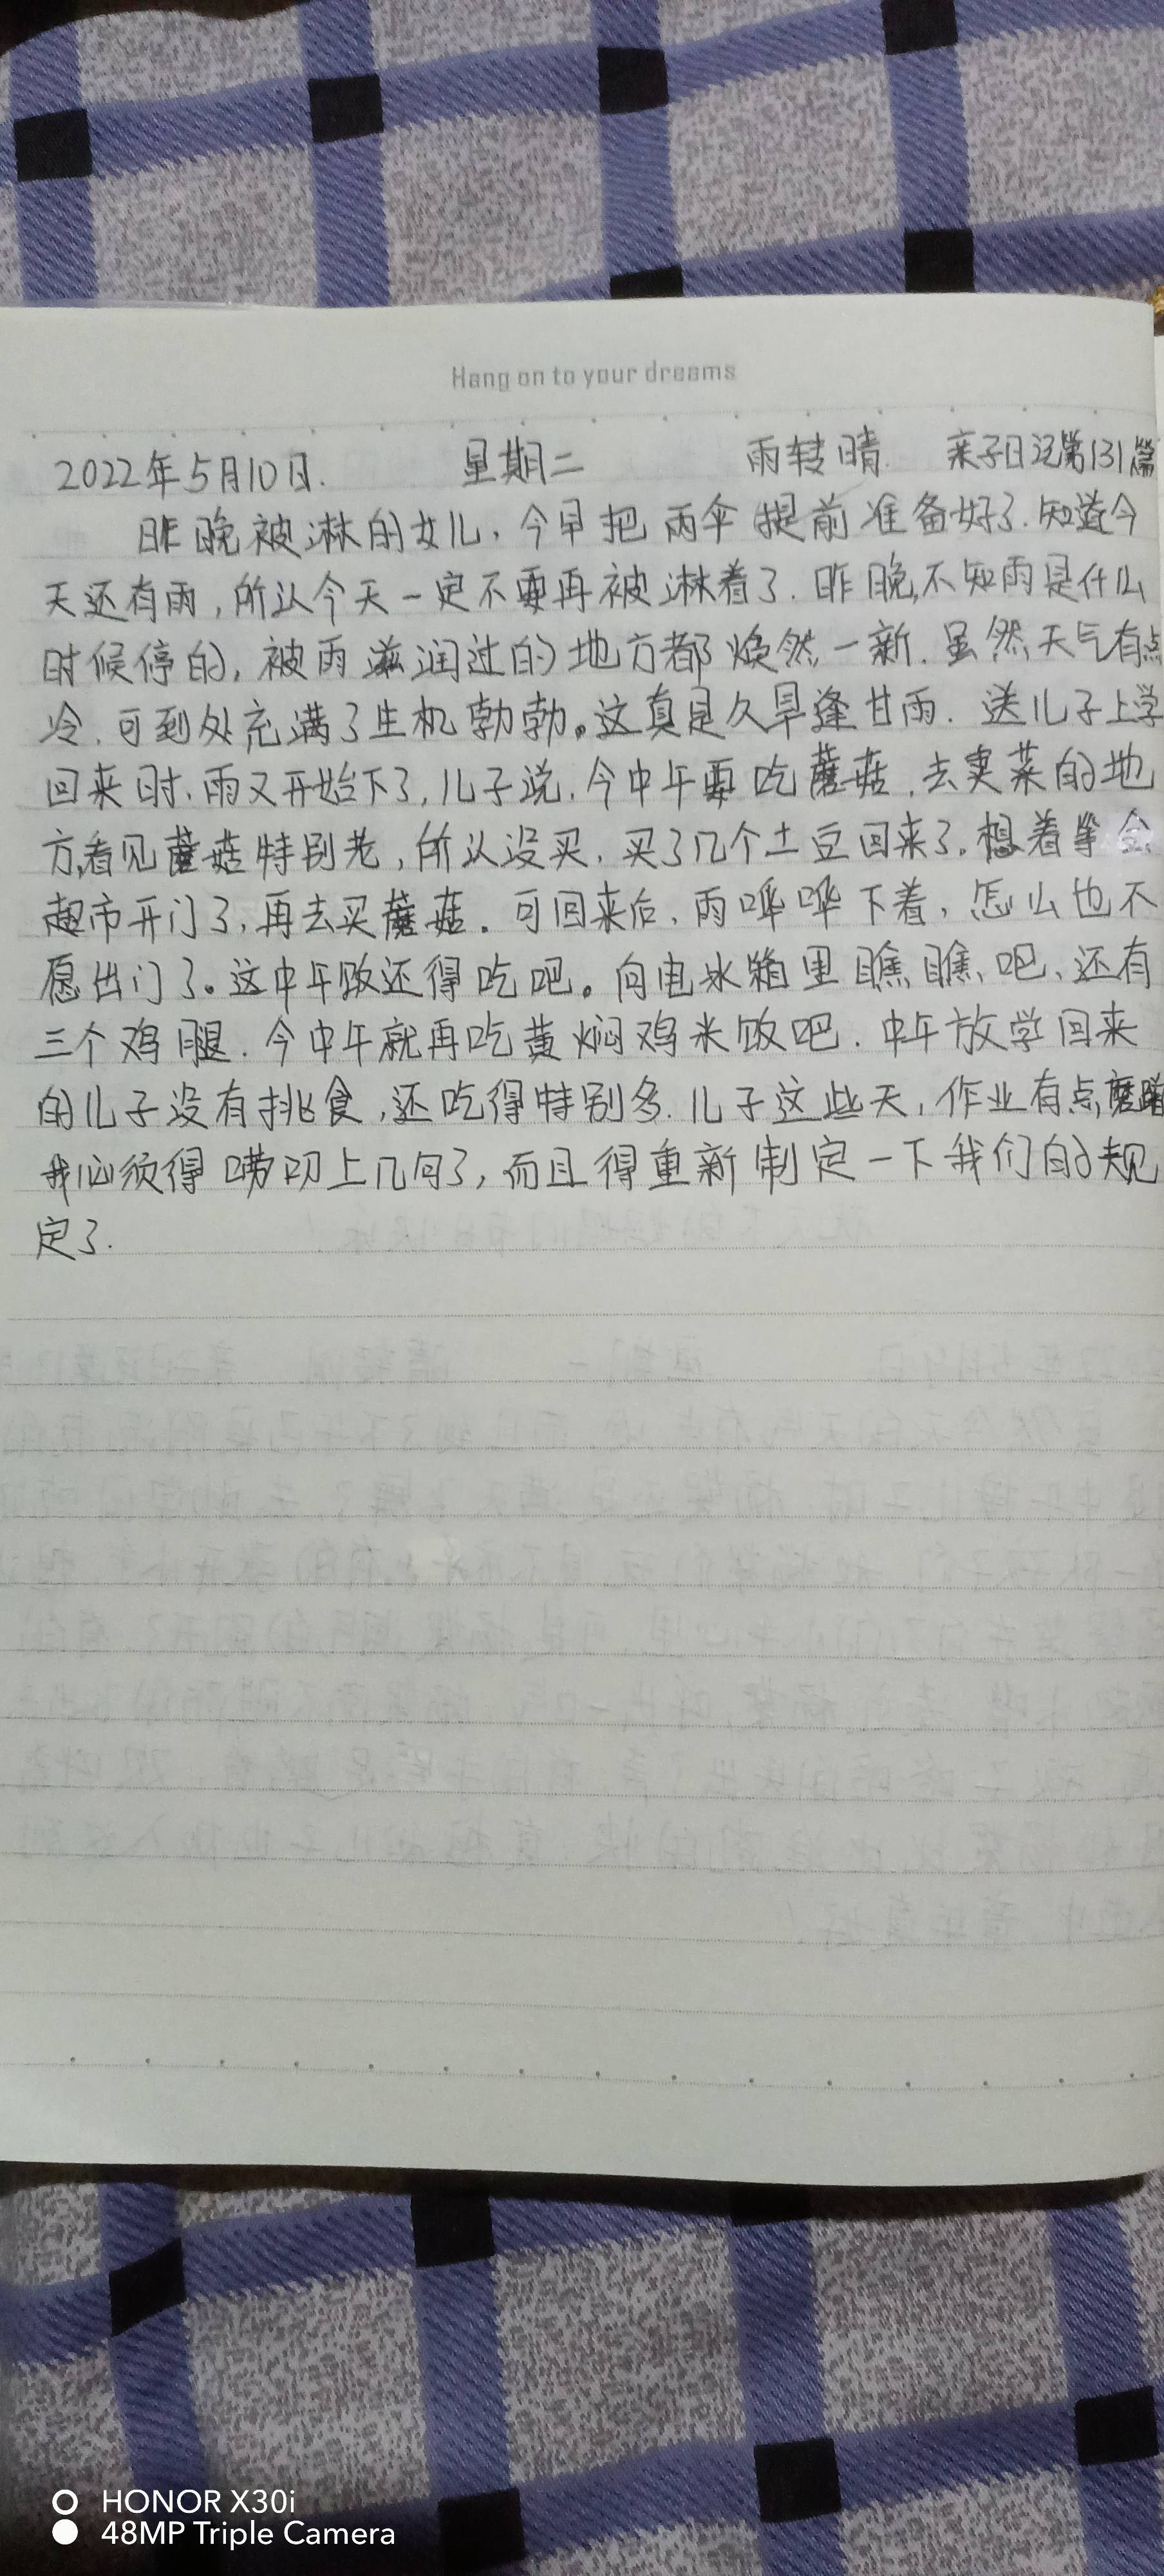 Hang on to your dreams
2022年5月10日. 星期二 雨转晴. 亲子日记第131篇
昨晚被淋的女儿,今早把雨伞提前准备好了.知道今
天还有雨,所以今天一定不要再被淋着了.昨晚,不知雨是什么
时候停的,被雨滋润过的地方都焕然一新.虽然天气有点
冷.可到处充满了生机勃勃。这真是久旱逢甘雨.送儿子上学
回来时.雨又开始下了,儿子说.今中午要吃蘑菇.去卖菜的地
方,看见蘑菇特别老,所以没买.买了几个土豆回来了.想着等会
超市开门了,再去买蘑菇.可回来后.雨哗哗下着,怎么也不
愿出门了。这中午饭还得吃吧。向电冰箱里瞧瞧吧、还有
三个鸡腿.今中午就再吃黄焖鸡米饭吧.中午放学回来
的儿子没有挑食,还吃得特别多.儿子这些天,作业有点磨蹭
我必须得唠叨上几句了,而且得重新制定一下我们的规
定了.
HONOR X30i
48MP Triple Camera